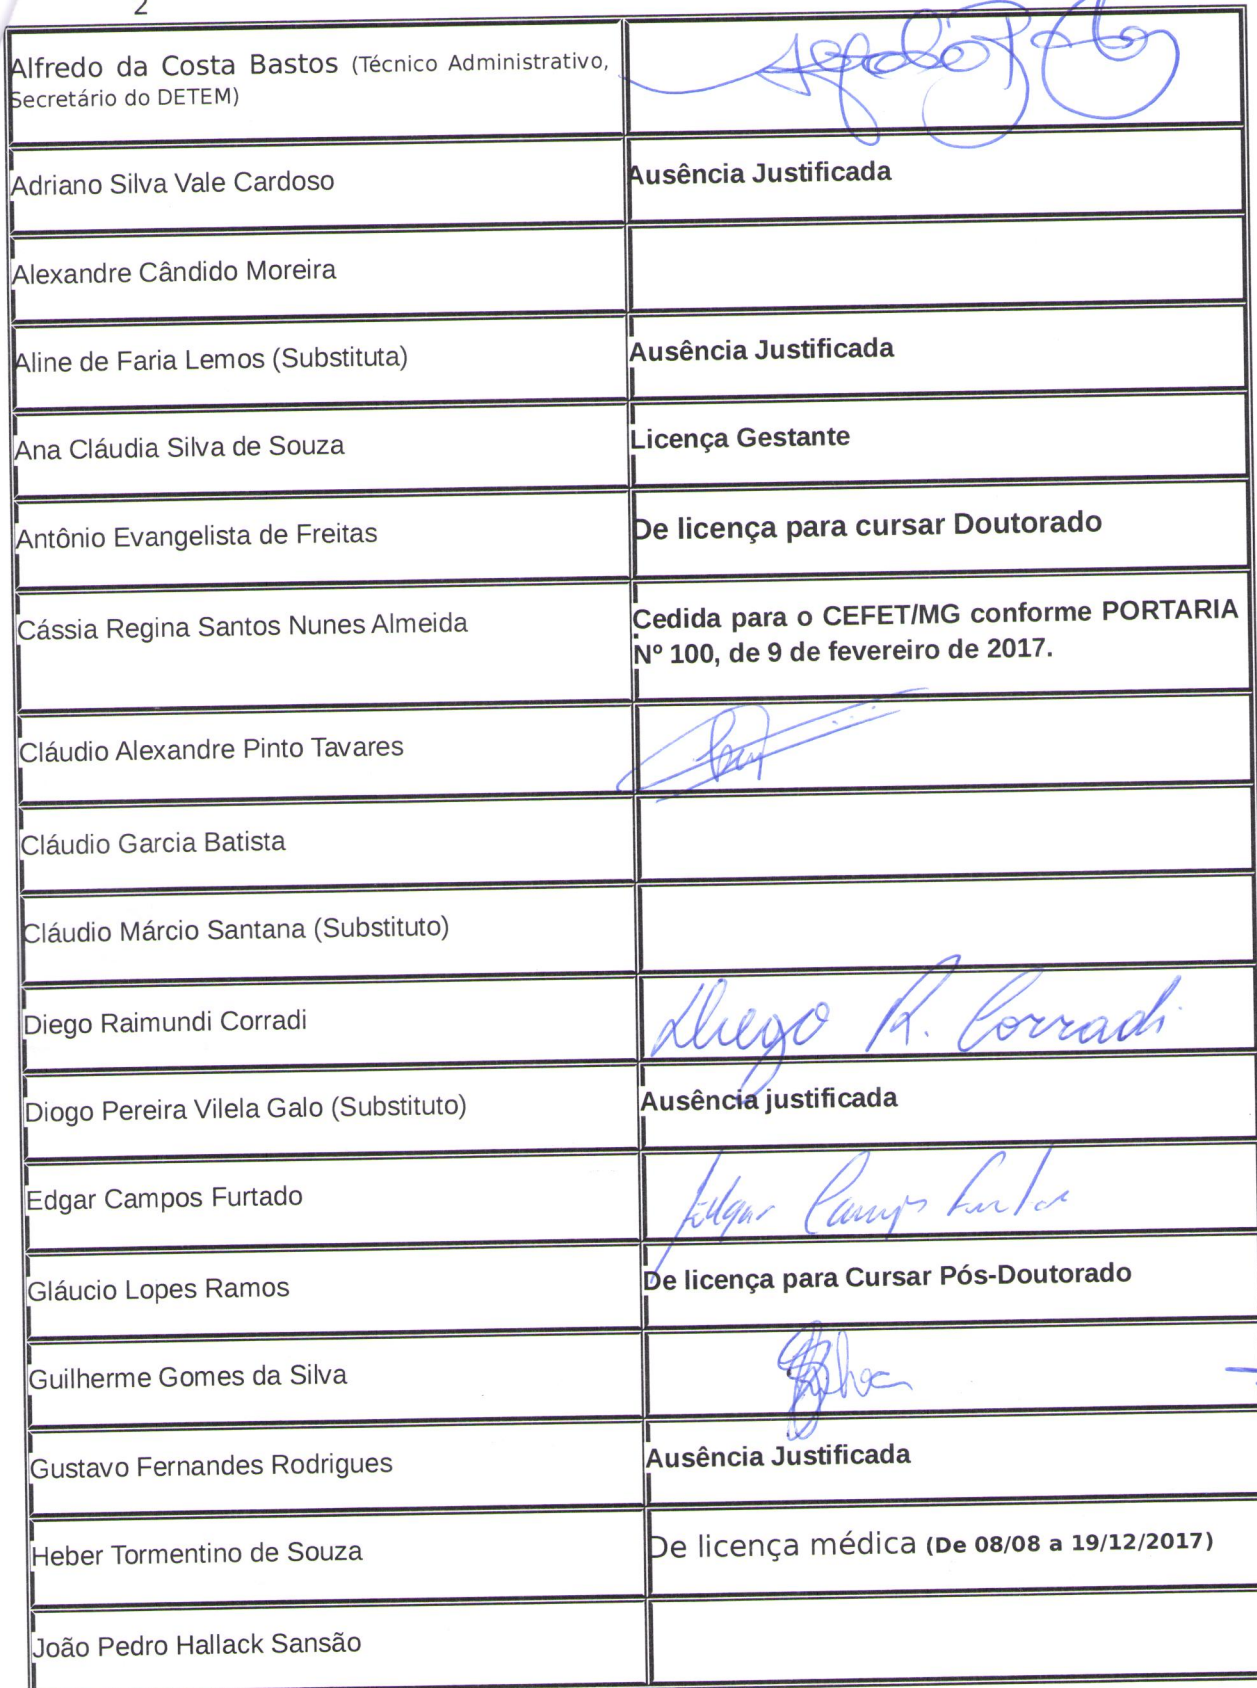 2
Alfredo da Costa Bastos (Técnico Administrativo,
Secretário do DETEM)
Adriano Silva Vale Cardoso
Ausência Justificada
Alexandre Cândido Moreira
Aline de Faria Lemos (Substituta)
Ausência Justificada
Ana Cláudia Silva de Souza
Licença Gestante
Antônio Evangelista de Freitas
De licença para cursar Doutorado
Cássia Regina Santos Nunes Almeida
Cedida para o CEFET/MG conforme PORTARIA
Nº 100, de 9 de fevereiro de 2017.
Cláudio Alexandre Pinto Tavares
Cláudio Garcia Batista
Cláudio Márcio Santana (Substituto)
Diego Raimundi Corradi
Diego R. Corradi
Diogo Pereira Vilela Galo (Substituto)
Ausência justificada
Edgar Campos Furtado
Edgar Campos Furtado
Gláucio Lopes Ramos
De licença para Cursar Pós-Doutorado
Guilherme Gomes da Silva
Gustavo Fernandes Rodrigues
Ausência Justificada
Heber Tormentino de Souza
De licença médica (De 08/08 a 19/12/2017)
João Pedro Hallack Sansão